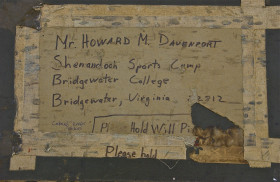 Mr. HOWARD M. DAVENPORT
Shenandoah Sports Camp
Bridgewater College
Bridgewater, Virginia 22812
Hold Will Pi
Please hold